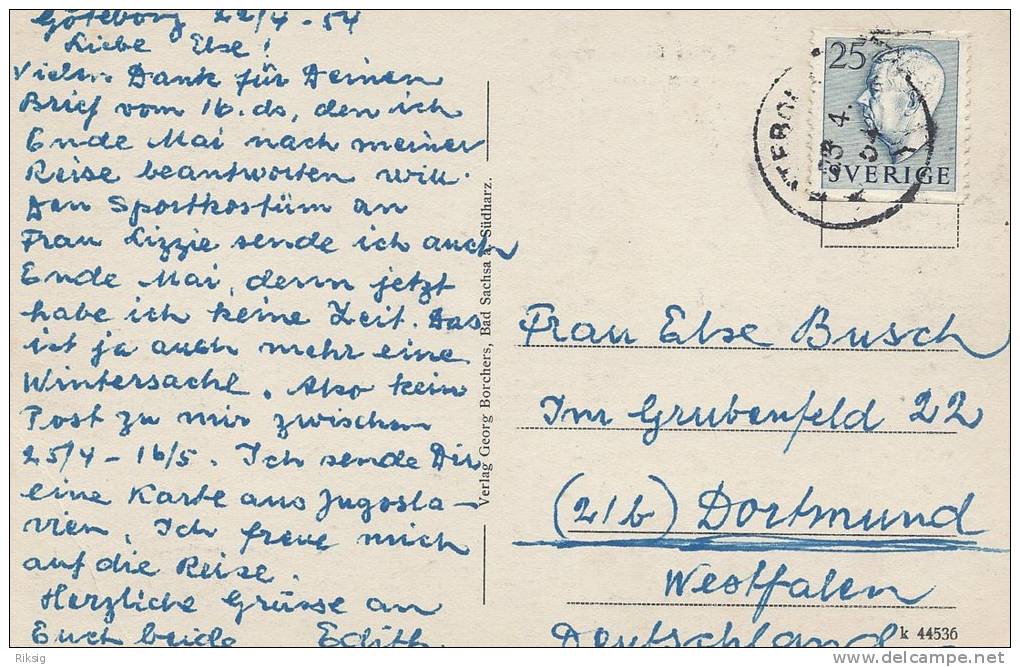 Göteborg 22/4-54
Liebe Else!
Vielen Dank für Deinen
Brief vom 16. ds, den ich
Ende Mai nach meiner
Reise beantworten will.
Den Sportkostüm an
Frau Lizzie sende ich auch
Ende Mai, denn jetzt
habe ich keine Zeit. Das
ist ja auch mehr eine
Wintersache. Also kein
Post zu mir zwischen
25/4 - 16/5. Ich sende Dir
eine Karte aus Jugosla-
vien. Ich freue mich
auf die Reise.
Herzliche Grüsse an
Euch beide Edith.
Verlag Georg Borchers, Bad Sachsa a. Südharz.
25
SVERIGE
23 4.
54
Frau Else Busch
Im Grubenfeld 22
(21b) Dortmund
Westfalen
Deutschland
k 44536
Riksig
www.delcampe.net